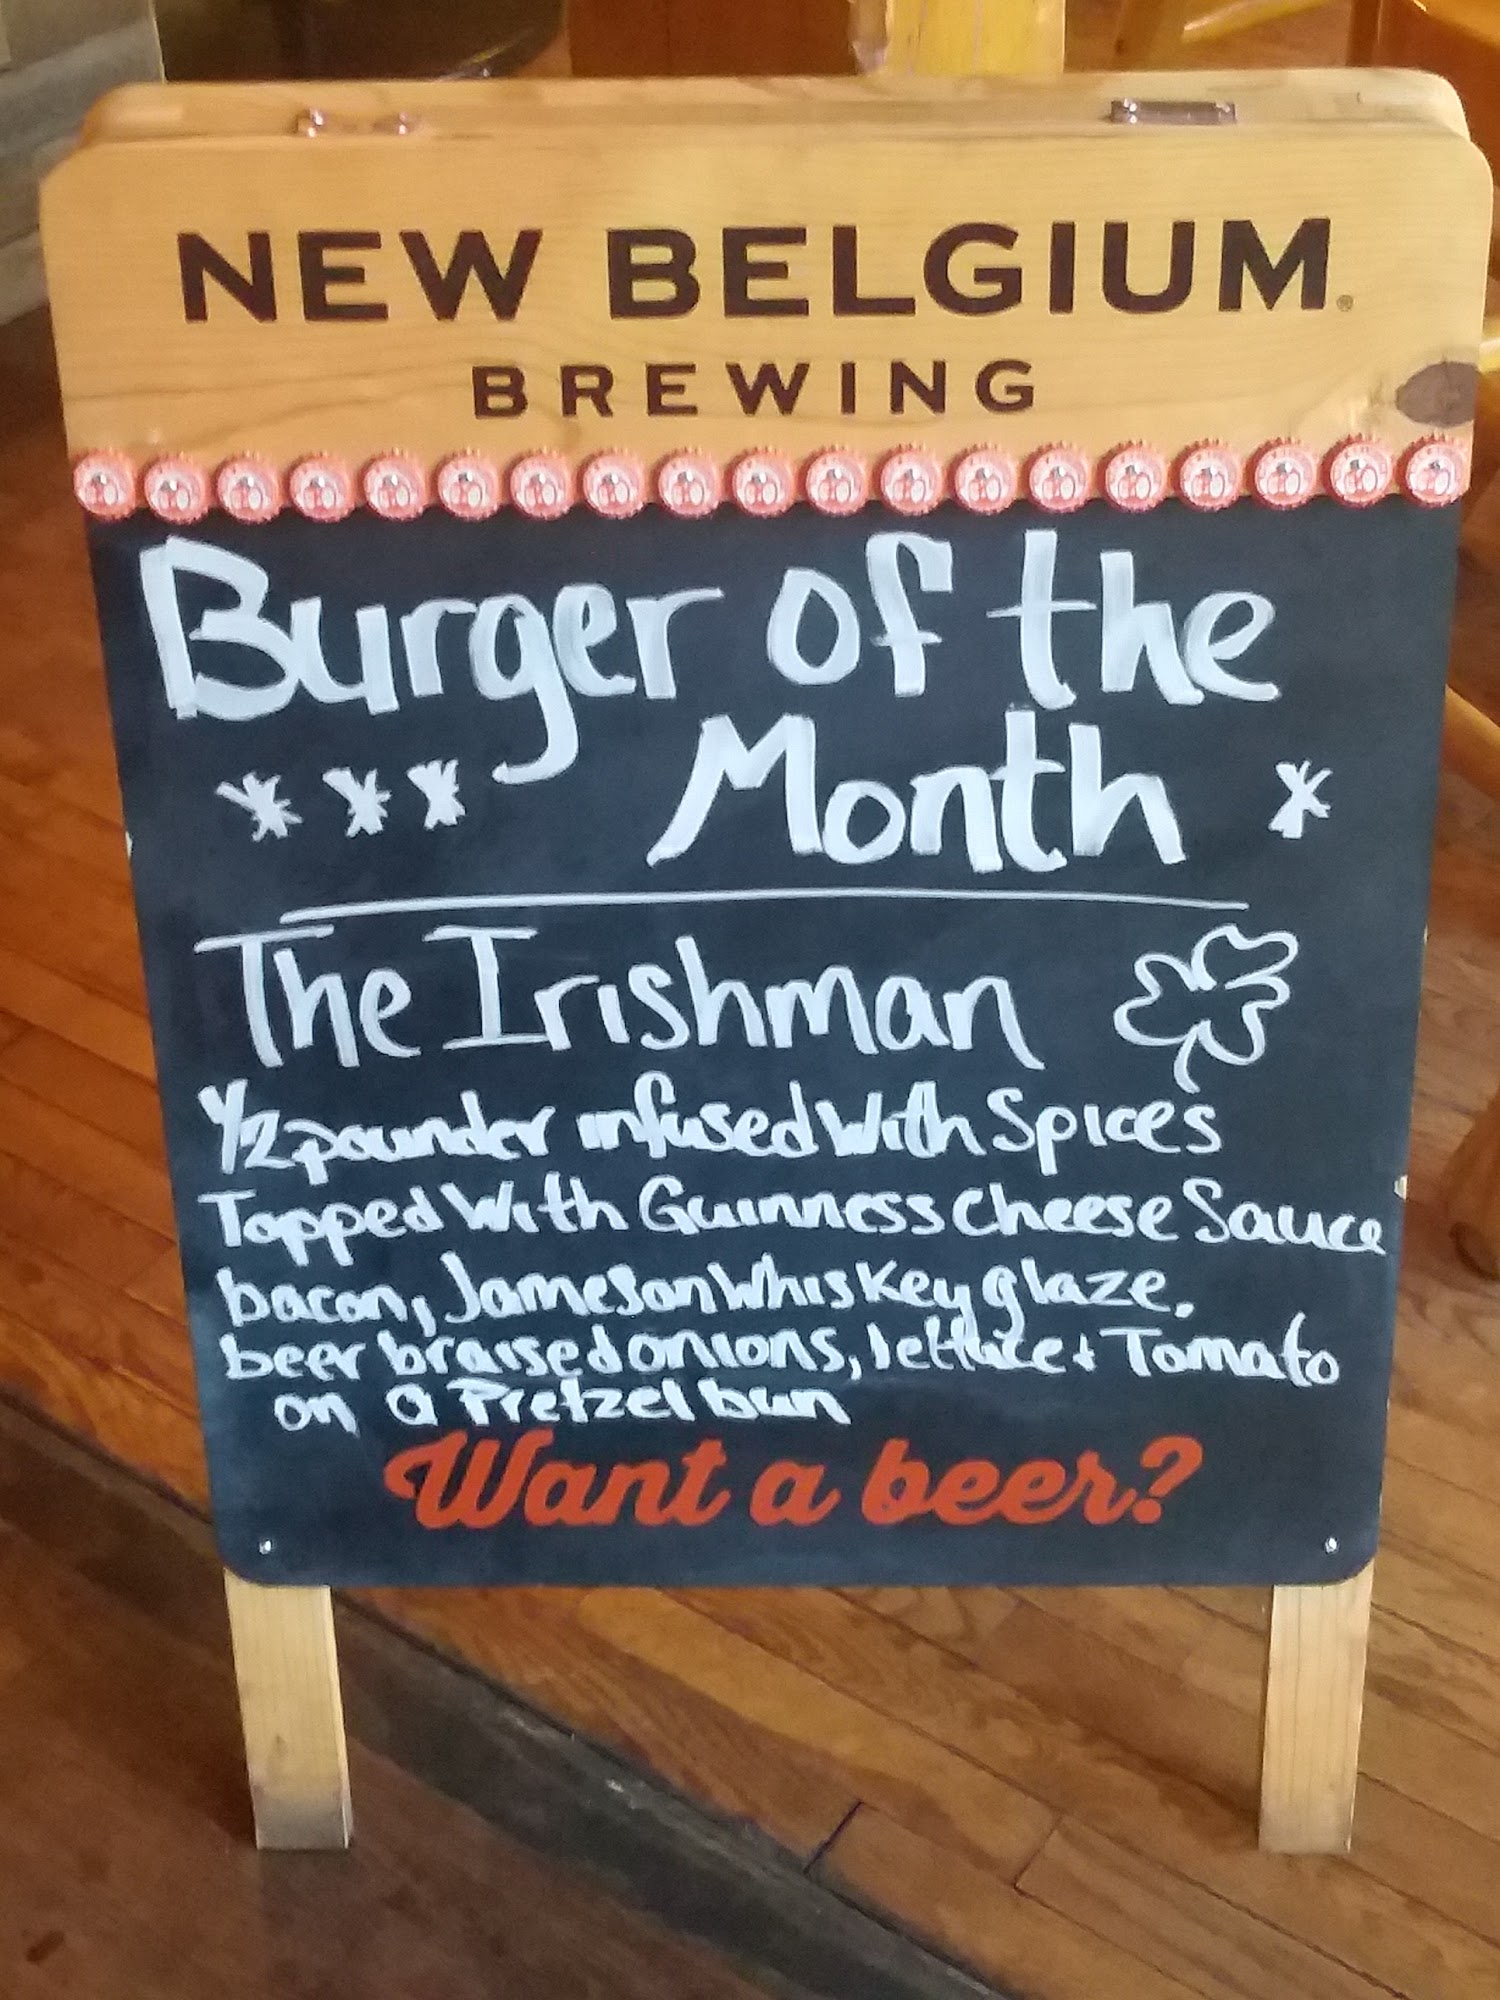 NEW BELGIUM®
BREWING
Burger of the
*** Month *
The Irishman
1/2 pounder infused With Spices
Topped With Guinness Cheese Sauce
bacon, Jameson Whiskey glaze.
beer braised onions, lettuce + Tomato
on a Pretzel bun
Want a beer?